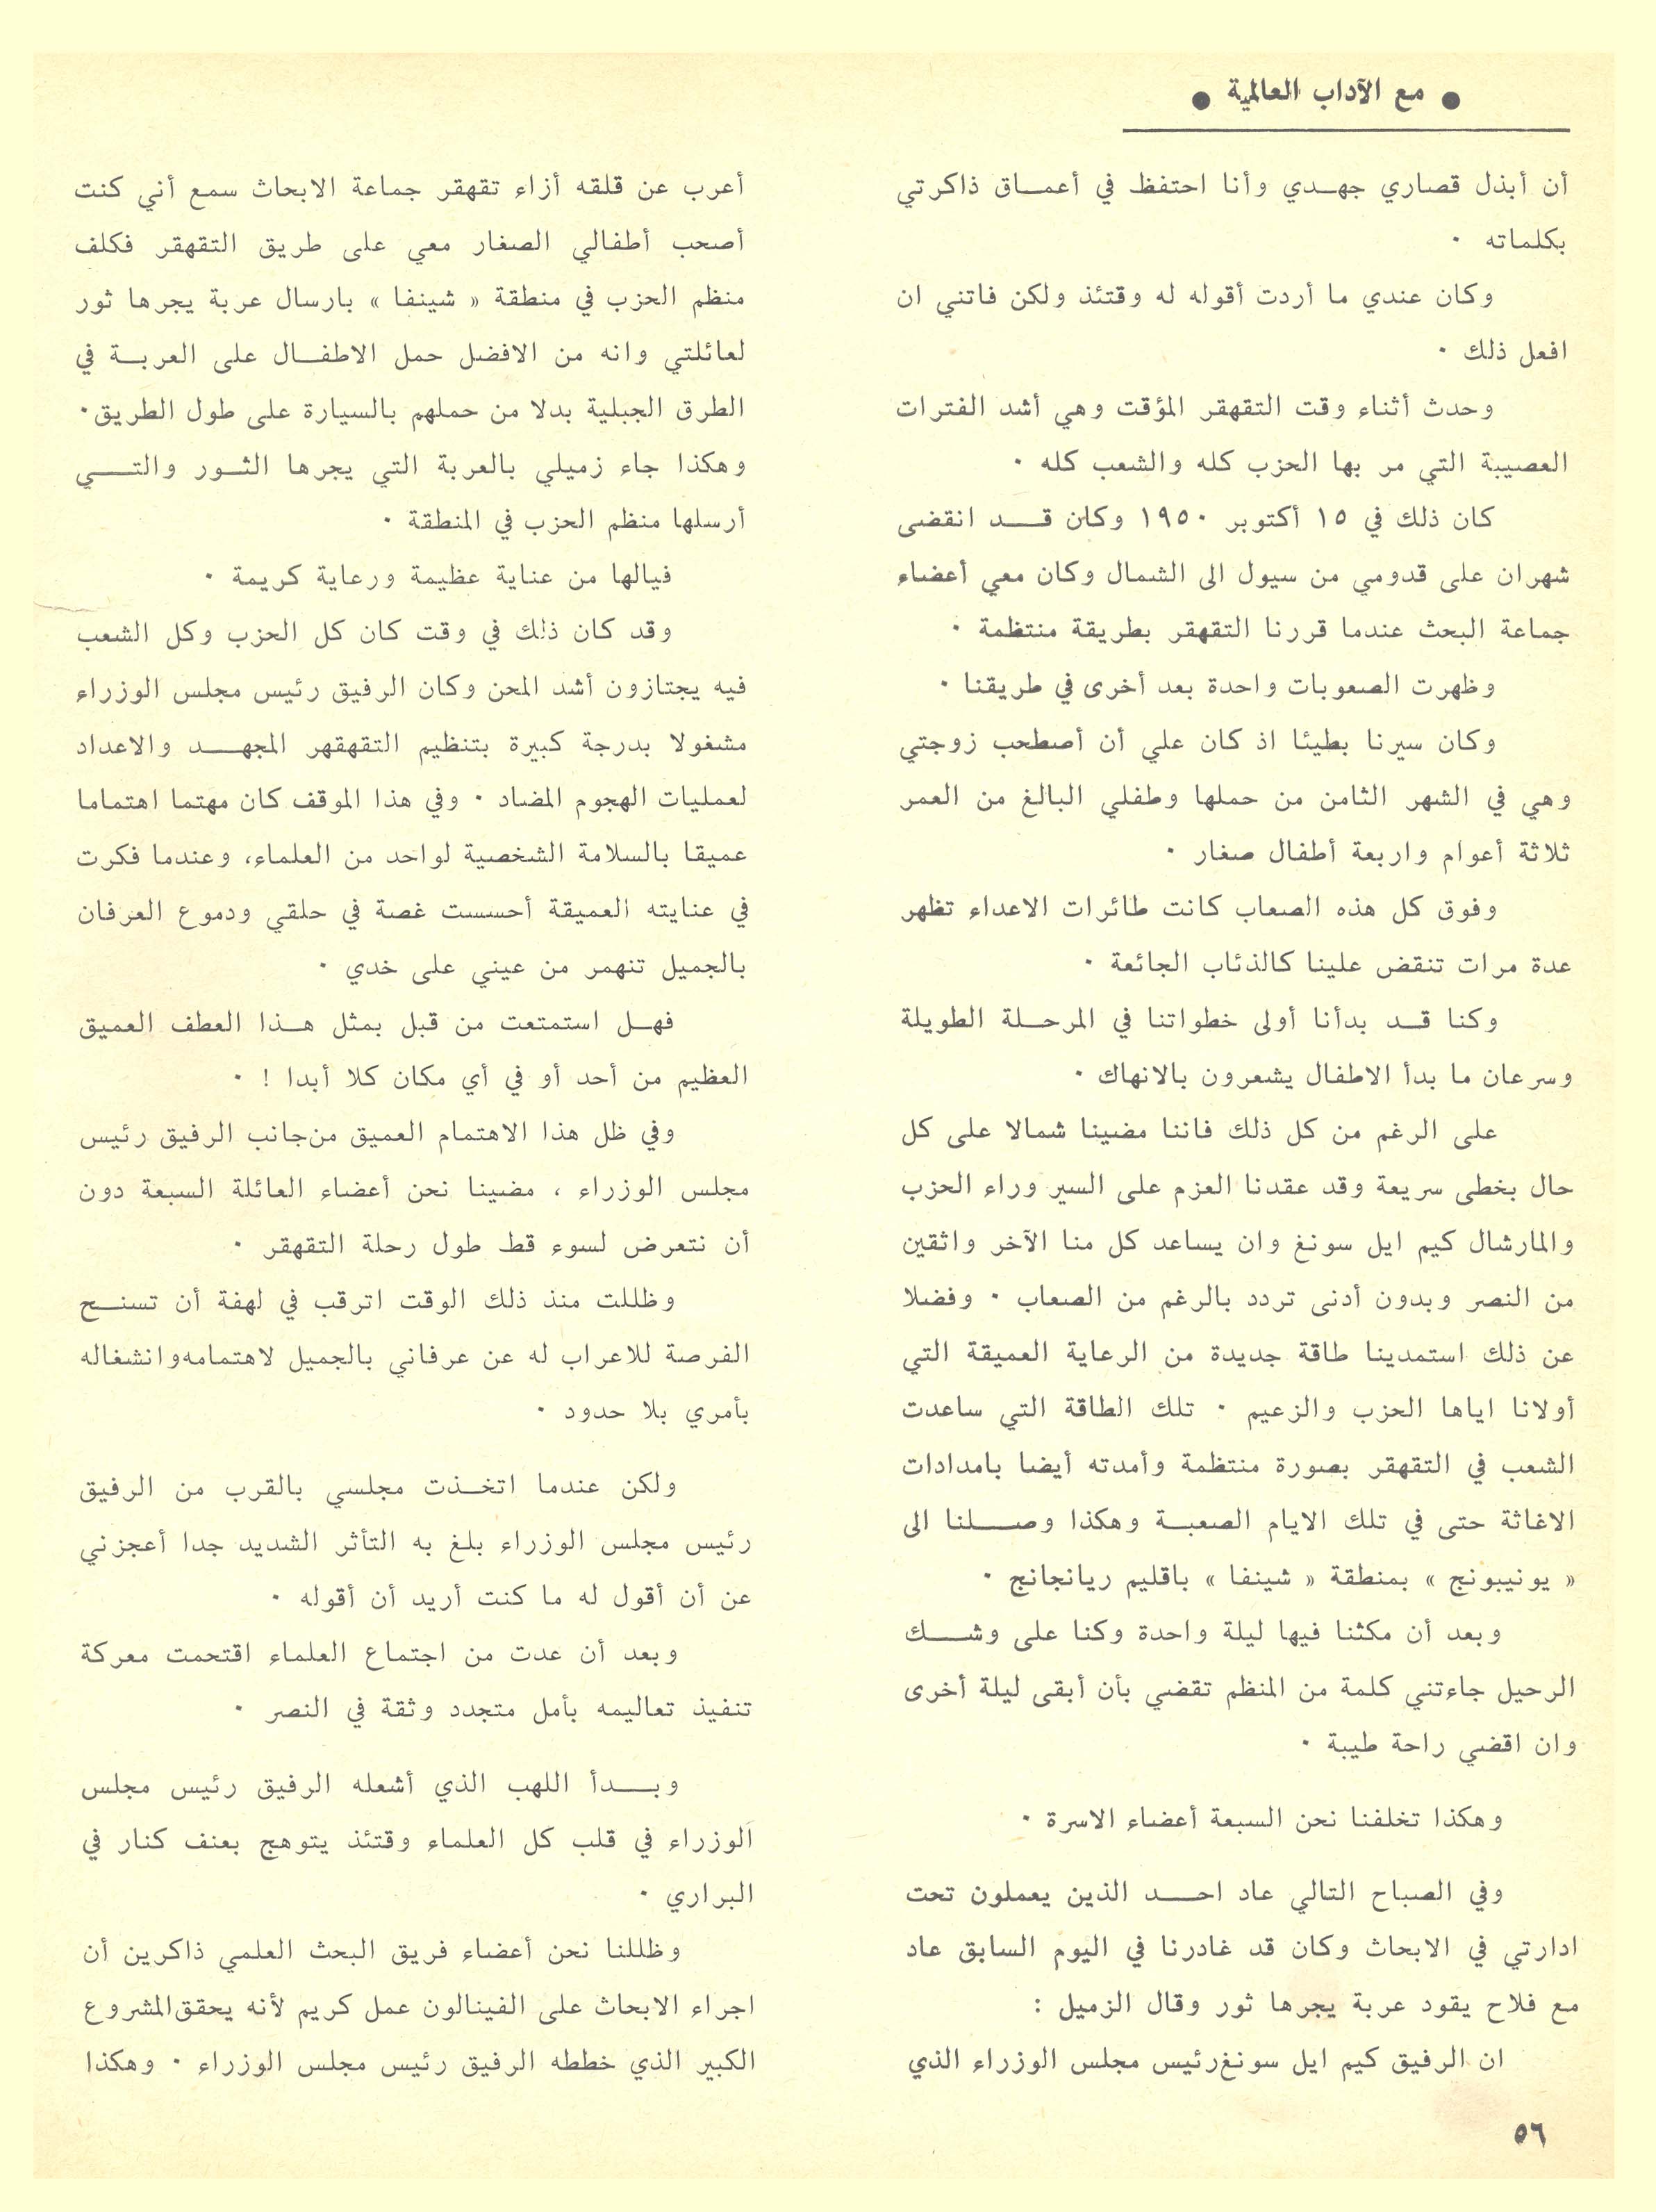 ● مع الآداب العالمية ●
أن أبذل قصاري جهدي وأنا احتفظ في أعماق ذاكرتي
بكلماته ٠
وكان عندي ما أردت أقوله له وقتئذ ولكن فاتني ان
افعل ذلك ٠
وحدث أثناء وقت التقهقر المؤقت وهي أشد الفترات
العصيبة التي مر بها الحزب كله والشعب كله ٠
كان ذلك في ١٥ أكتوبر ١٩٥٠ وكان قد انقضى
شهران على قدومي من سيول الى الشمال وكان معي أعضاء
جماعة البحث عندما قررنا التقهقر بطريقة منتظمة ٠
وظهرت الصعوبات واحدة بعد أخرى في طريقنا ٠
وكان سيرنا بطيئا اذ كان علي أن أصطحب زوجتي
وهي في الشهر الثامن من حملها وطفلي البالغ من العمر
ثلاثة أعوام واربعة أطفال صغار ٠
وفوق كل هذه الصعاب كانت طائرات الاعداء تظهر
عدة مرات تنقض علينا كالذئاب الجائعة ٠
وكنا قد بدأنا أولى خطواتنا في المرحلة الطويلة
وسرعان ما بدأ الاطفال يشعرون بالانهاك ٠
على الرغم من كل ذلك فاننا مضينا شمالا على كل
حال بخطى سريعة وقد عقدنا العزم على السير وراء الحزب
والمارشال كيم ايل سونغ وان يساعد كل منا الآخر واثقين
من النصر وبدون أدنى تردد بالرغم من الصعاب ٠ وفضلا
عن ذلك استمدينا طاقة جديدة من الرعاية العميقة التي
أولانا اياها الحزب والزعيم ٠ تلك الطاقة التي ساعدت
الشعب في التقهقر بصورة منتظمة وأمدته أيضا بامدادات
الاغاثة حتى في تلك الايام الصعبة وهكذا وصلنا الى
« يونيبونج » بمنطقة « شينفا » باقليم ريانجانج ٠
وبعد أن مكثنا فيها ليلة واحدة وكنا على وشك
الرحيل جاءتني كلمة من المنظم تقضي بأن أبقى ليلة أخرى
وان اقضي راحة طيبة ٠
وهكذا تخلفنا نحن السبعة أعضاء الاسرة ٠
وفي الصباح التالي عاد احد الذين يعملون تحت
ادارتي في الابحاث وكان قد غادرنا في اليوم السابق عاد
مع فلاح يقود عربة يجرها ثور وقال الزميل :
ان الرفيق كيم ايل سونغ رئيس مجلس الوزراء الذي
أعرب عن قلقه أزاء تقهقر جماعة الابحاث سمع أني كنت
أصحب أطفالي الصغار معي على طريق التقهقر فكلف
منظم الحزب في منطقة « شينفا » بارسال عربة يجرها ثور
لعائلتي وانه من الافضل حمل الاطفال على العربة في
الطرق الجبلية بدلا من حملهم بالسيارة على طول الطريق٠
وهكذا جاء زميلي بالعربة التي يجرها الثور والتي
أرسلها منظم الحزب في المنطقة ٠
فيالها من عناية عظيمة ورعاية كريمة ٠
وقد كان ذلك في وقت كان كل الحزب وكل الشعب
فيه يجتازون أشد المحن وكان الرفيق رئيس مجلس الوزراء
مشغولا بدرجة كبيرة بتنظيم التقهقهر المجهد والاعداد
لعمليات الهجوم المضاد ٠ وفي هذا الموقف كان مهتما اهتماما
عميقا بالسلامة الشخصية لواحد من العلماء، وعندما فكرت
في عنايته العميقة أحسست غصة في حلقي ودموع العرفان
بالجميل تنهمر من عيني على خدي ٠
فهل استمتعت من قبل بمثل هذا العطف العميق
العظيم من أحد أو في أي مكان كلا أبدا ! ٠
وفي ظل هذا الاهتمام العميق من جانب الرفيق رئيس
مجلس الوزراء ، مضينا نحن أعضاء العائلة السبعة دون
أن نتعرض لسوء قط طول رحلة التقهقر ٠
وظللت منذ ذلك الوقت اترقب في لهفة أن تسنح
الفرصة للاعراب له عن عرفاني بالجميل لاهتمامه وانشغاله
بأمري بلا حدود ٠
ولكن عندما اتخذت مجلسي بالقرب من الرفيق
رئيس مجلس الوزراء بلغ به التأثر الشديد جدا أعجزني
عن أن أقول له ما كنت أريد أن أقوله ٠
وبعد أن عدت من اجتماع العلماء اقتحمت معركة
تنفيذ تعاليمه بأمل متجدد وثقة في النصر ٠
وبدأ اللهب الذي أشعله الرفيق رئيس مجلس
الوزراء في قلب كل العلماء وقتئذ يتوهج بعنف كنار في
البراري ٠
وظللنا نحن أعضاء فريق البحث العلمي ذاكرين أن
اجراء الابحاث على الفينالون عمل كريم لأنه يحقق المشروع
الكبير الذي خططه الرفيق رئيس مجلس الوزراء ٠ وهكذا
٥٦